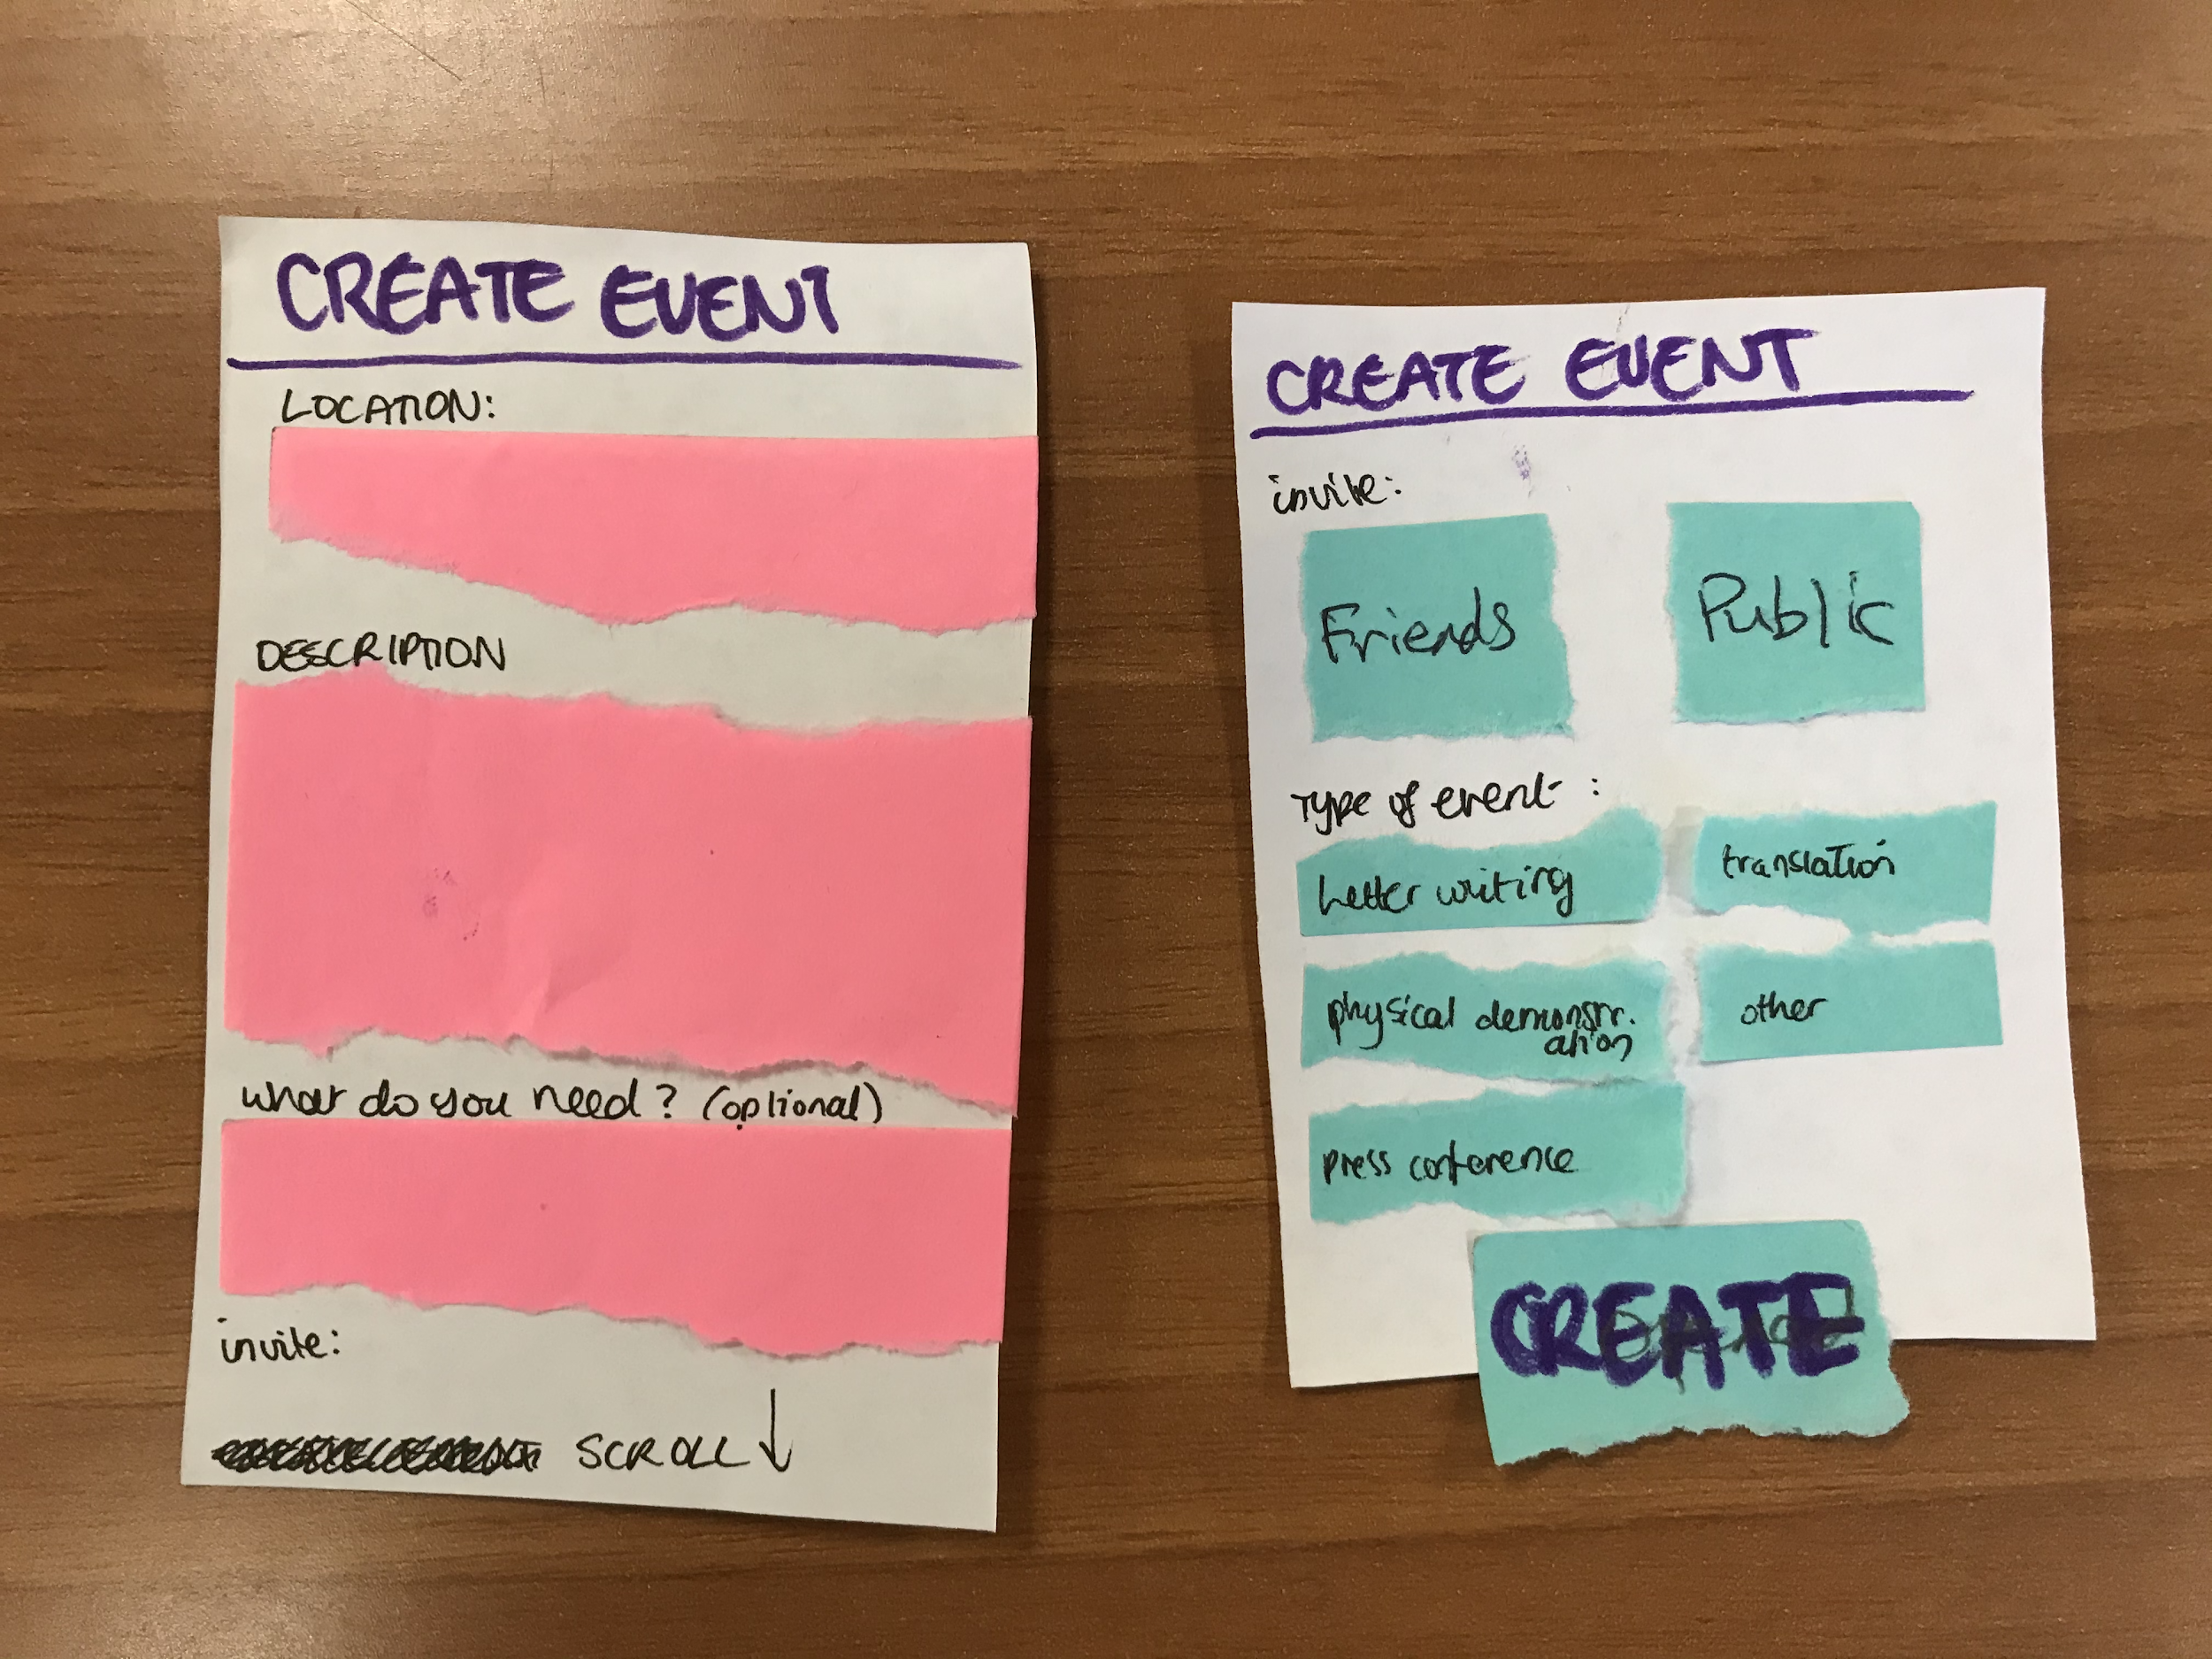 CREATE EVENT
LOCATION:
DESCRIPTION
what do you need? (optional)
invite:
SCROLL ↓
CREATE EVENT
invite:
Friends
Public
Type of event:
Letter writing
translation
physical demonstr.
ation
other
press conference
CREATE